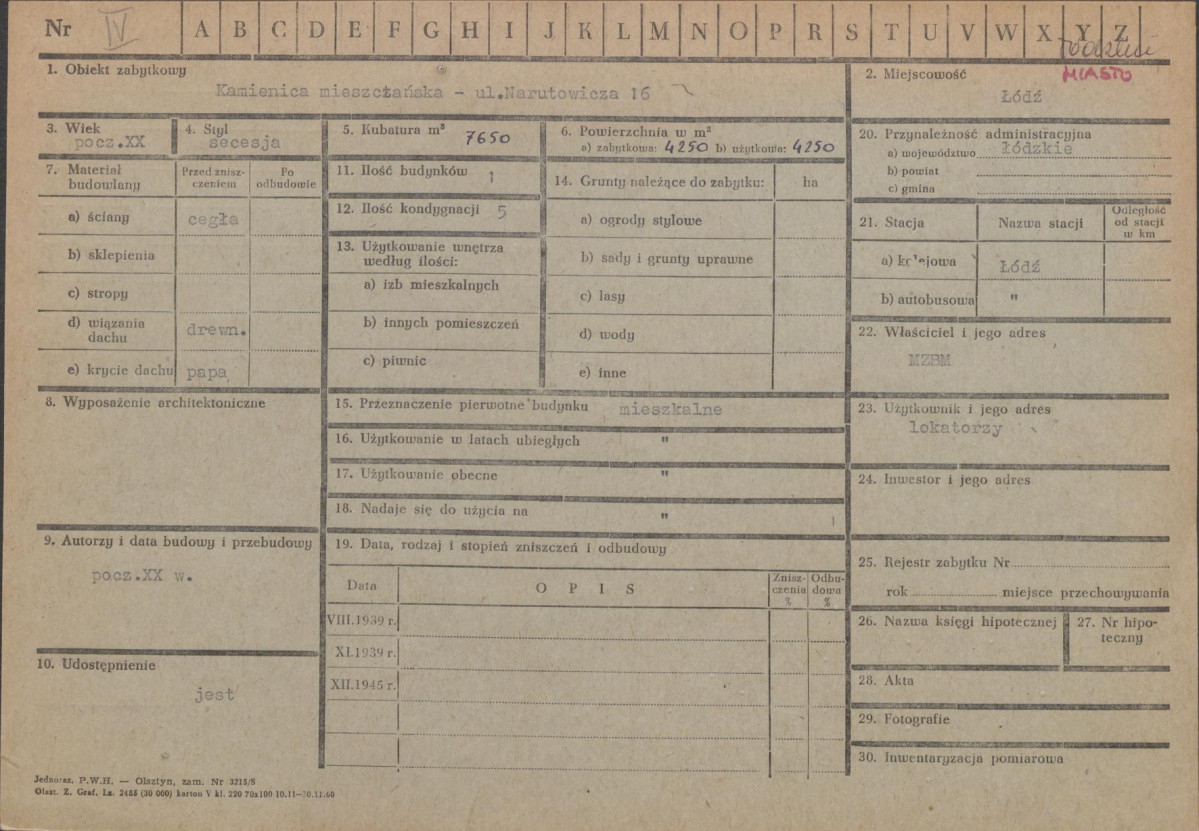 Nr IV A B C D E F G H I J K L M N O P R S T U V W X Y Z
MIASTO
1. Obiekt zabytkowy
Kamienica mieszczańska - ul.Narutowicza 16
2. Miejscowość
Łódź
3. Wiek
pocz.XX
4. Styl
secesja
5. Kubatura m³
7650
6. Powierzchnia w m²
a) zabytkowa: 4250 b) użytkowa: 4250
20. Przynależność administracyjna
a) województwo łódzkie
b) powiat
c) gmina
7. Materiał budowlany
Przed znisz-
czeniem
Po
odbudowie
a) ściany cegła
b) sklepienia
c) stropy
d) wiązania
dachu drewn.
e) krycie dachu papa
11. Ilość budynków 1
12. Ilość kondygnacji 5
13. Użytkowanie wnętrza
według ilości:
a) izb mieszkalnych
b) innych pomieszczeń
c) piwnic
14. Grunty należące do zabytku: ha
a) ogrody stylowe
b) sady i grunty uprawne
c) lasy
d) wody
e) inne
21. Stacja
Nazwa stacji
Odległość
od stacji
w km
a) kolejowa Łódź
b) autobusowa "
22. Właściciel i jego adres
MZBM
8. Wyposażenie architektoniczne
15. Przeznaczenie pierwotne budynku mieszkalne
16. Użytkowanie w latach ubiegłych "
17. Użytkowanie obecne "
18. Nadaje się do użycia na "
23. Użytkownik i jego adres
lokatorzy
24. Inwestor i jego adres
9. Autorzy i data budowy i przebudowy
pocz.XX w.
19. Data, rodzaj i stopień zniszczeń i odbudowy
Data
O P I S
Znisz-
czenia
%
Odbu-
dowa
%
VIII.1939 r.
XI.1939 r.
XII.1945 r.
25. Rejestr zabytku Nr
rok miejsce przechowywania
26. Nazwa księgi hipotecznej
27. Nr hipo-
teczny
10. Udostępnienie
jest
28. Akta
29. Fotografie
30. Inwentaryzacja pomiarowa
Jednoraz. P.W.H. — Olsztyn, zam. Nr 3215/S
Olszt. Z. Graf. Lz. 2488 (30 000) karton V kl. 220 70x100 10.11—30.11.60